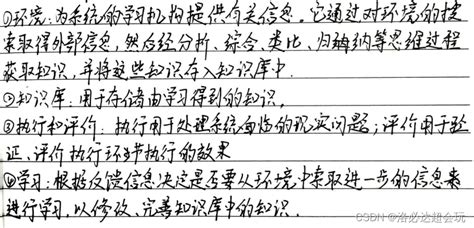 ①环境:为系统的学习机构提供有关信息。它通过对环境的搜
索取得外部信息,然后经分析、综合、类比、归纳等思维过程
获取知识,并将这些知识存入知识库中.
②知识库:用于存储由学习得到的知识。
③执行和评价:执行用于处理系统面临的现实问题;评价用于验
证、评价执行环节执行的效果
④学习:根据反馈信息决定是否要从环境中索取进一步的信息来
进行学习,以修改、完善知识库中的知识.
CSDN @洛必达超会玩